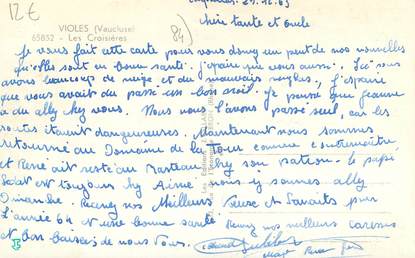 12€
VIOLES (Vaucluse)
65852 - Les Croisières
84)
29.12.63
Chère tante et oncle
Je vous fait cette carte pour vous donez un peut de nos nouvelles
qu'elles soit en bonne santé. j'espaire que vous aussi. Ici nous
avons beaucoups de neige et du mauvais temps, j'espaire
que vous avait du passé un bon noël. Je pense que jeanne
a du ally chez vous. Nous nous l'avons passé seul, car les
routes étawit dangeureuses. Maintenant nous sommes
retourné au Domaine de la Tour comme contremaître
et René ait resté au Marteau chez son patron. le papé
Salat est toujours hy Aimé nous y sommes ally
Dimanche. Recevez nos Meilleurs Vœux et Souaits pour
l'année 64 et une bonne santé. Recevez nos meilleurs caresses
et bon baisers de nous Tous.